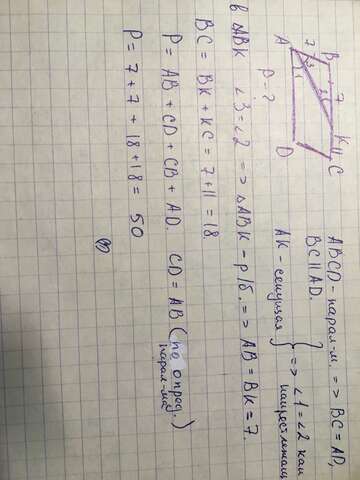 B 7 K 11 C
7 3 2
A 1 D
P - ?
ABCD - парал-м. => BC = AD,
BC || AD.
AK - секущая } => ∠1 = ∠2 как
накрестлежащ
в △ABK ∠3 = ∠2 => △ABK - р/б. => AB = BK = 7.
BC = BK + KC = 7 + 11 = 18.
P = AB + CD + CB + AD. CD = AB (по опред.)
парал-ма
P = 7 + 7 + 18 + 18 = 50